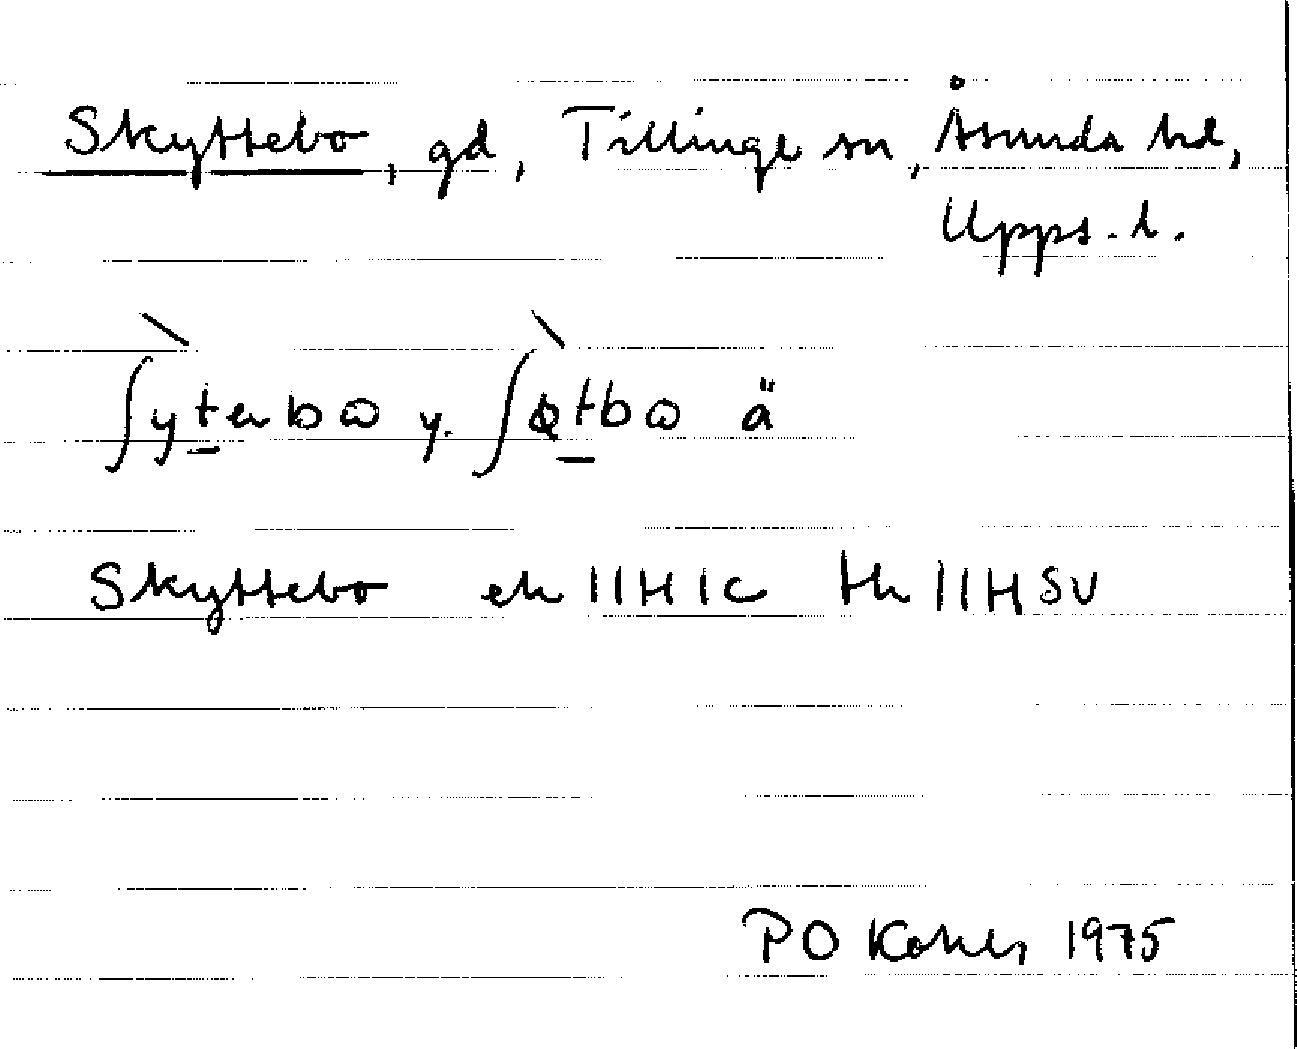 Skyttebo, gd, Tillinge sn, Åsunda hd,
Upps. l.
ʃỳtebω y. ʃɵ̀tbω ä
Skyttebo ek 11H1c tk 11H SV
PO 1975